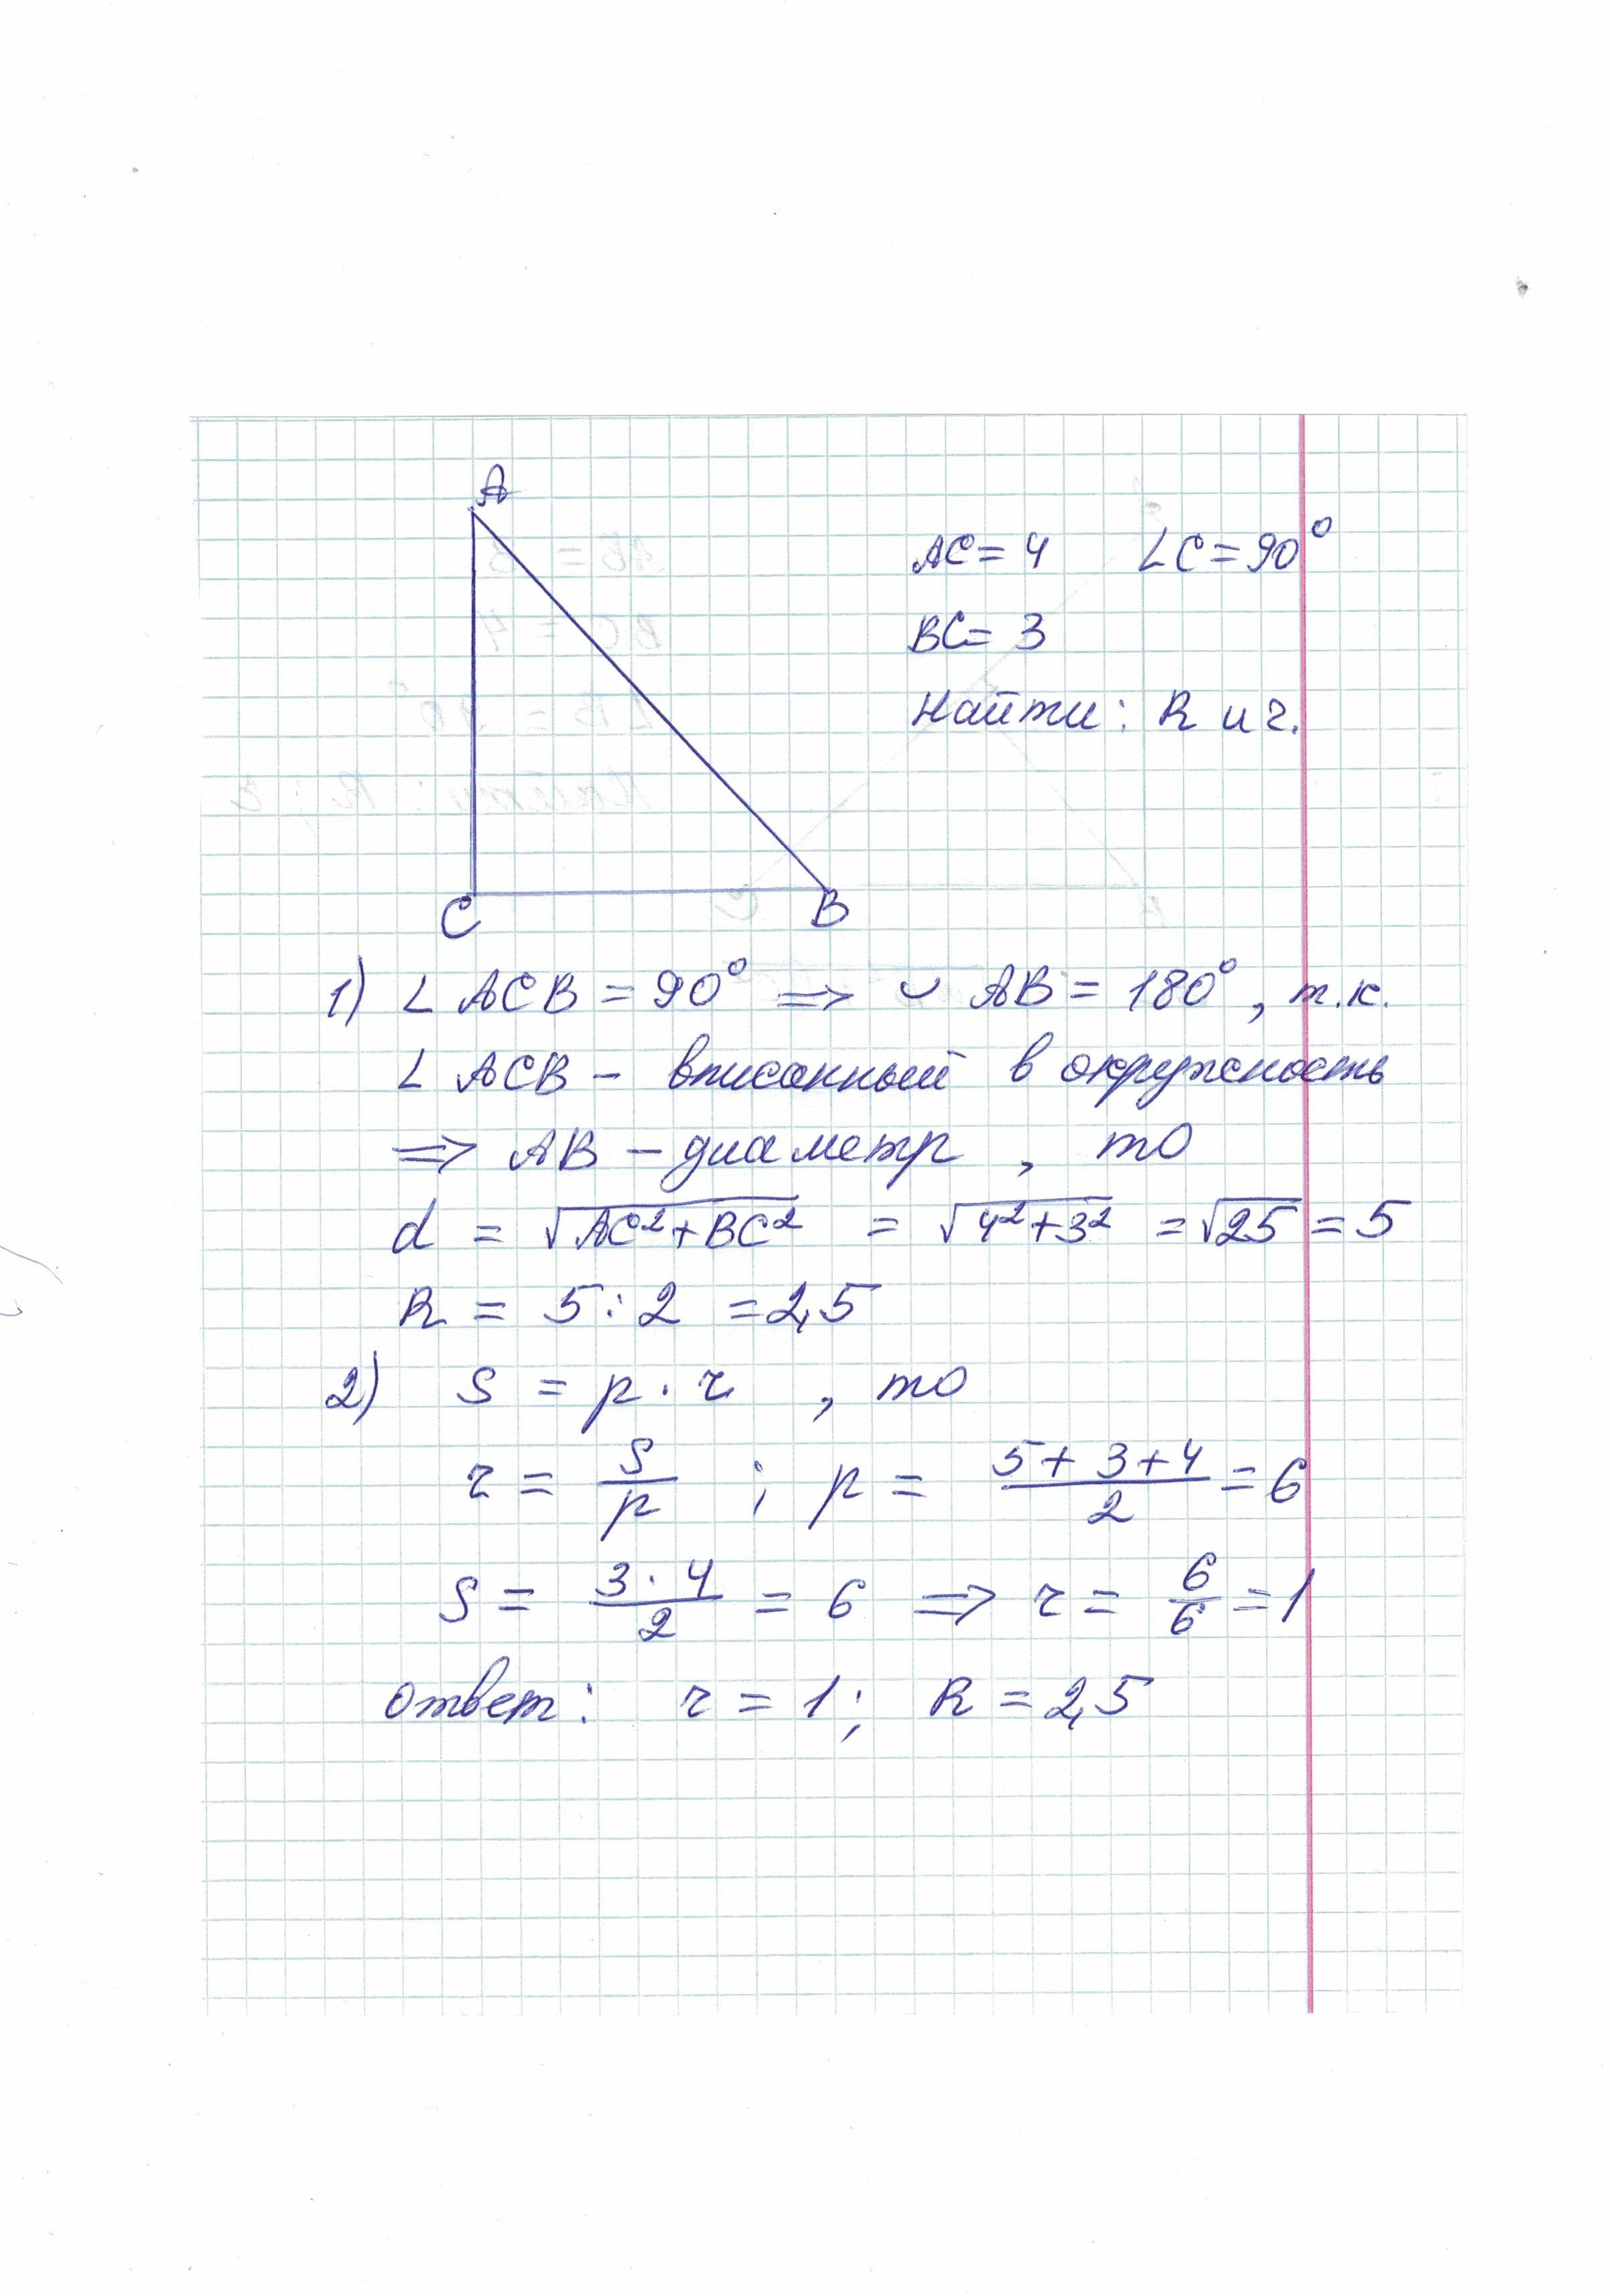 A
AC = 4 ∠C = 90°
BC = 3
Найти: R и r.
C B
1) ∠ ACB = 90° => ◡ AB = 180°, т.к.
∠ ACB – вписанный в окружность
=> AB – диаметр, то
d = √AC²+BC² = √4²+3² = √25 = 5
R = 5 : 2 = 2,5
2) S = p · r, то
r = S/p ; p = (5 + 3 + 4)/2 = 6
S = (3 · 4)/2 = 6 => r = 6/6 = 1
ответ: r = 1; R = 2,5